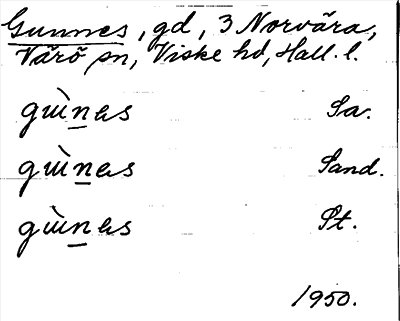 Gunnes, gd, 3 Norvära,
Värö sn, Viske hd, Hall. l.
gùnas Sa.
gùnas Sand.
gùnas St.
1950.